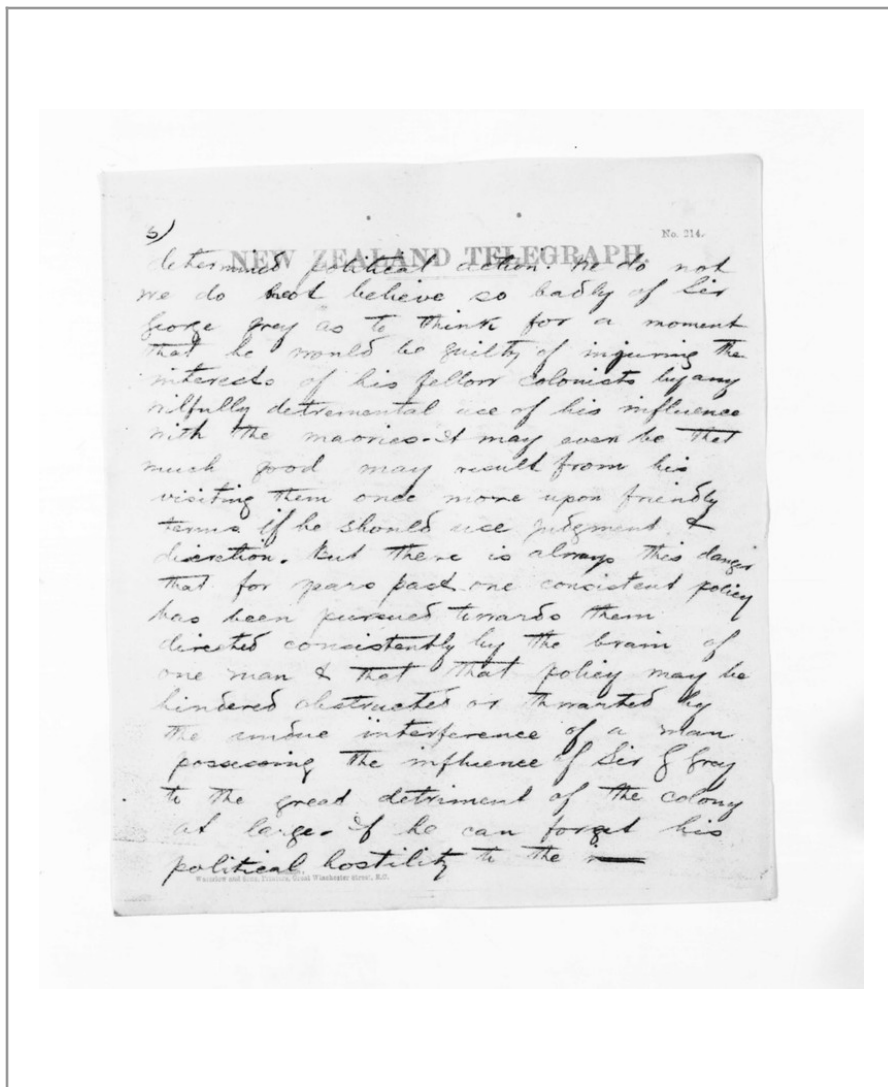 5)
No. 214.
NEW ZEALAND TELEGRAPH.
determined political action. We do not
we do not believe so badly of Sir
George Grey as to think for a moment
that he would be guilty of injuring the
interests of his fellow colonists by any
wilfully detremental use of his influence
with the maories - It may even be that
much good may result from his
visiting them once more upon friendly
terms if he should use judgment &
discretion. But there is always this danger
that for years past one consistent policy
has been pursued towards them
directed consistently by the brain of
one man & that that policy may be
hindered obstructed or thwarted by
the undue interference of a man
possessing the influence of Sir G Grey
to the great detriment of the colony
at large - If he can forget his
political hostility to the
Waterlow and Sons, Printers, Great Winchester Street, E.C.